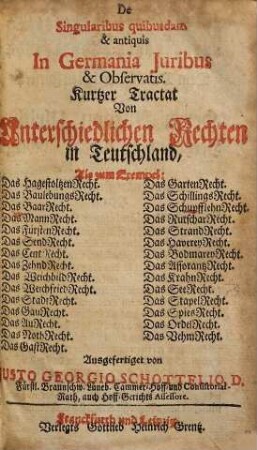 De
Singularibus quibusdam
& antiquis
In Germania Juribus
& Observatis.
Kurtzer Tractat
Von
Unterschiedlichen Rechten
in Teutschland,
Als zum Exempel:
Das HagestoltzenRecht.
Das BaulebungsRecht.
Das BaarRecht.
Das MannRecht.
Das FürstenRecht.
Das SendRecht.
Das CentRecht.
Das ZehndRecht.
Das WeichbildRecht.
Das WeichfriedRecht.
Das StadtRecht.
Das GauRecht.
Das AuRecht.
Das NothRecht.
Das GastRecht.
Das GartenRecht.
Das SchillingsRecht.
Das SchupfflehnRecht.
Das RutscharRecht.
Das StrandRecht.
Das HavereyRecht.
Das BodmareyRecht.
Das AfforantzRecht.
Das KrahnRecht.
Das SeeRecht.
Das StapelRecht.
Das SpiesRecht.
Das OrdelRecht.
Das VehmRecht.
Ausgefertiget von
JUSTO GEORGIO SCHOTTELIO, D.
Fürstl. Braunschw. Lüneb. Cammer-Hoff-und Consistorial-
Rath, auch Hoff-Gerichts Assessore.
Franckfurth und Leipzig,
Verlegts Gottlieb Heinrich Grentz.